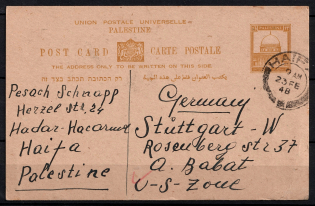 UNION POSTALE UNIVERSELLE
PALESTINE
POST CARD CARTE POSTALE
THE ADDRESS ONLY TO BE WRITTEN ON THIS SIDE
רק הכתובת תכתב בצד זה
يكتب العنوان على هذه الجهة
HAIFA
23 FE
48
Pesach Schnapp
Herzel str. 24
Hadar-Hacarmel
Haifa
Palestine
Germany
Stuttgart-W
Rosenberg str 37
A. Babat
U-S-Zone